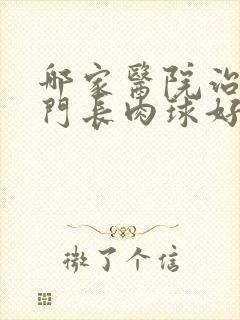 那家醫院治
門長肉球好
微了个信